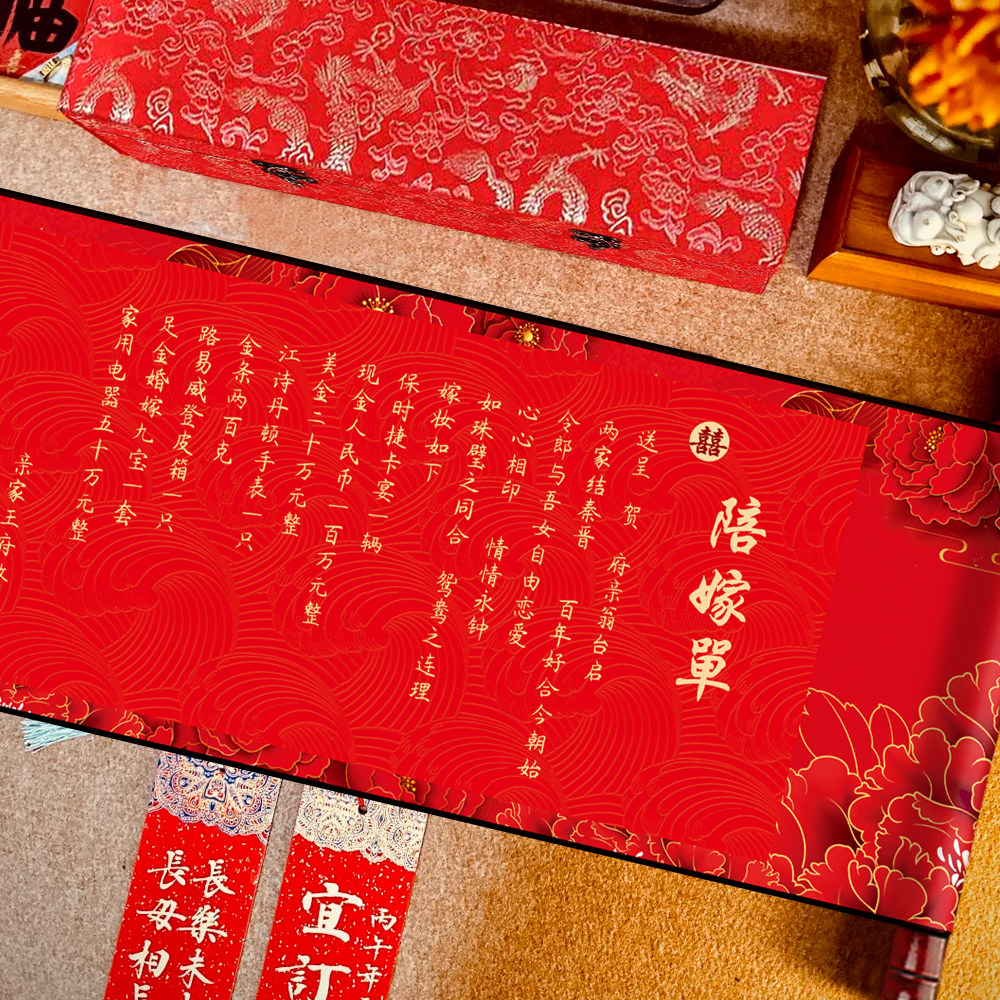 囍
陪嫁單
送呈 贺 府亲翁台启
两家结秦晋 百年好合今朝始
令郎与吾女自由恋爱
心心相印 情情永钟
如珠璧之同合 鸳鸯之连理
嫁妆如下
保时捷卡宴一辆
现金人民币一百万元整
美金二十万元整
江诗丹顿手表一只
金条两百克
路易威登皮箱一只
足金婚嫁九宝一套
家用电器五十万元整
亲家王府
丙午年
宜訂
長樂未
長毋相